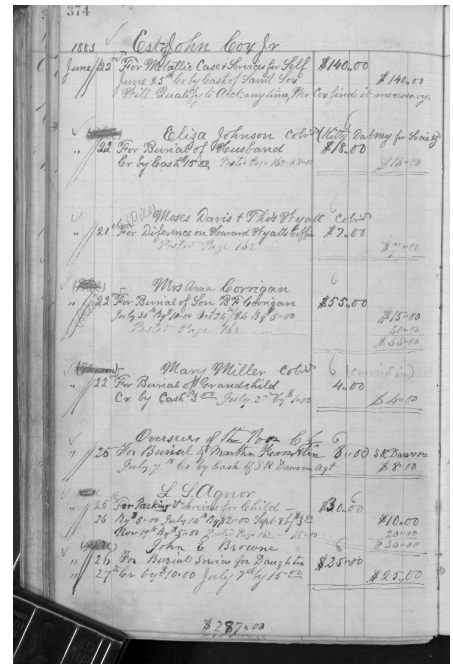 374
1885 Est. John Cox Jr
June 22 For Metallic Case & Services for Self $140.00
June 25th Cr by Cash of Land Cox $140.00
Will Qualify to Acct any time, Mr Cox finds it necessary.
Eliza Johnson Cold (Kitty Dabney for Society)
" 22 For Burial of Husband $18.00
Cr by Cash 15.00 Posted Page 162 $3.00 $18.00
Moses Davis & Thos Wyatt Cold 6
" 21 For Diference on Howard Wyatts Coffin $7.00
Posted Page 162 $7.00
Mrs Anna Corrigan 6
" 22 For Burial of Son B.F. Corrigan $55.00
July 30th By $10.00 Oct 26th/86 By $5.00 $15.00
Posted Page 162 40.00
$55.00
Mary Miller Cold 6 (carried in)
" 22 For Burial of Grandchild 4.00
Cr by Cash 3.00 July 2nd by $1.00 $4.00
Overseers of the Poor 6
" 25 For Burial of Martha Hamblin 8.00 S K Dawson
July 7th Cr by Cash of S K Dawson Agt $8.00
L S Agnor
" 25 For Packing & Services for Child $30.00
26 By $5.00 July 16th By $2.00 Sept 8 by $3.00 $10.00
Nov 17th By $5.00 Posted Page 162 20.00
$30.00
John C Browne 6
" 26 For Burial Services for Daughter $25.00
" 27th Cr by $10.00 July 7th by 15.00 $25.00
$287.00